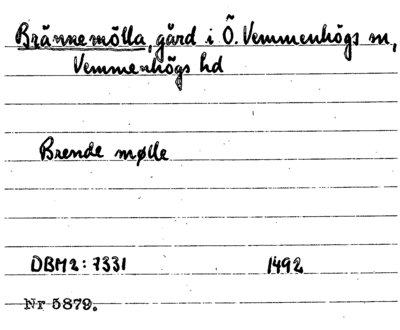 Brännemölla, gård i Ö. Vemmenhögs m,
Vemmenhögs hd
Brende mølle
DBM2:7331 1492
Nr 5879.